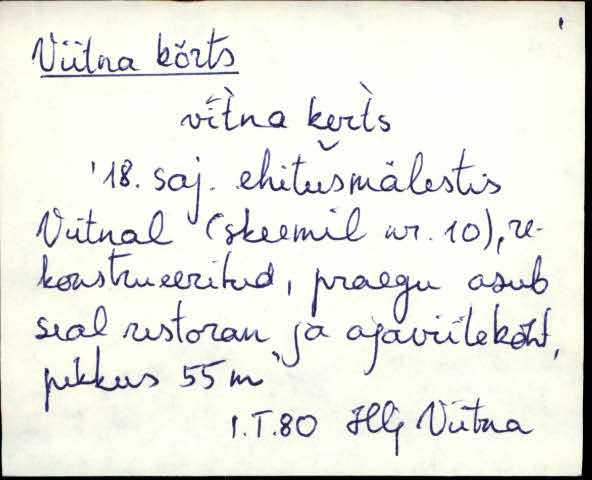 Viitna kõrts
vi̬ìtna kert̀s
'18. saj. ehitusmälestis
Viitnal (skeemil nr. 10), re-
konstrueeritud, praegu asub
seal restoran ja ajaviitekoht,
pikkus 55 m'
I.T.80 Hlj Viitna